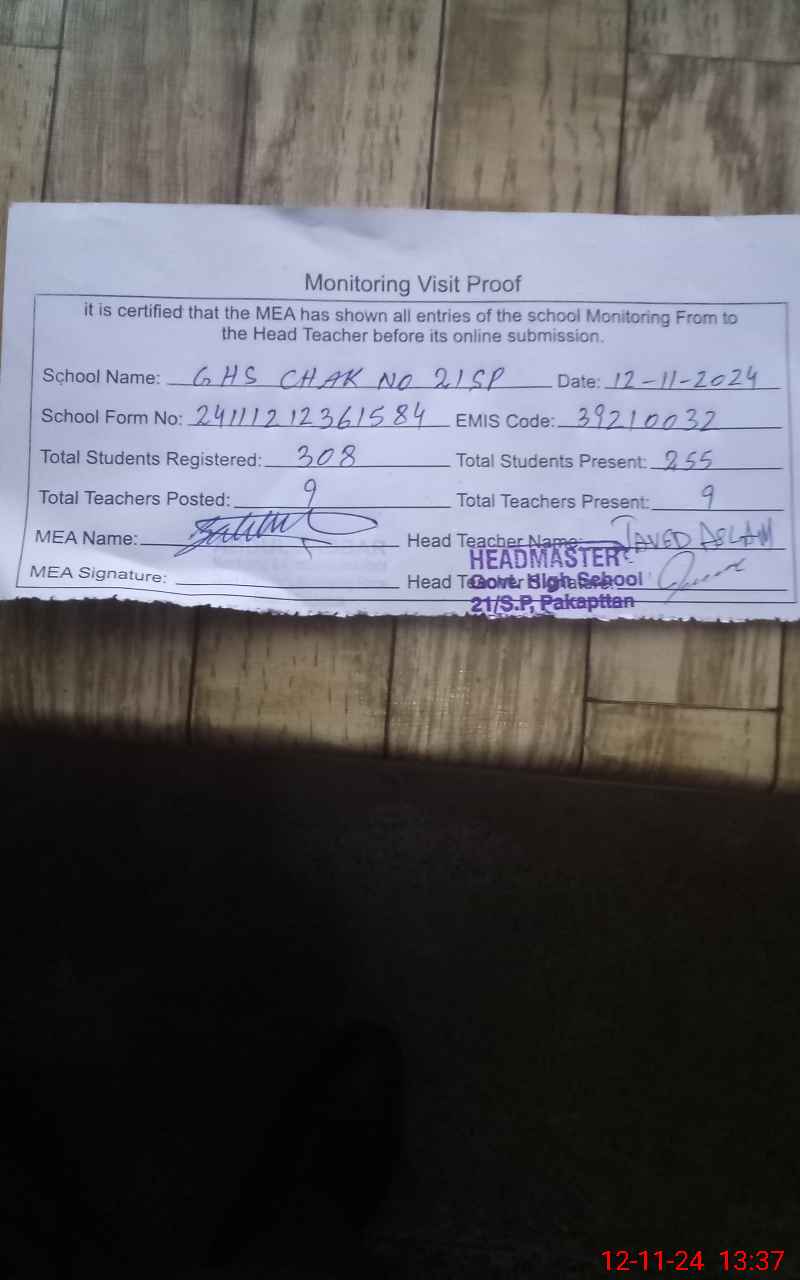 Monitoring Visit Proof
it is certified that the MEA has shown all entries of the school Monitoring From to
the Head Teacher before its online submission.
School Name: GHS CHAK NO 21SP Date: 12-11-2024
School Form No: 24111212361584 EMIS Code: 39210032
Total Students Registered: 308 Total Students Present: 255
Total Teachers Posted: 9 Total Teachers Present: 9
MEA Name: Head Teacher Name: JAVED ASLAM
HEADMASTER
MEA Signature: Head Teacher Signature:
Govt. High School
21/S.P, Pakapttan
12-11-24 13:37